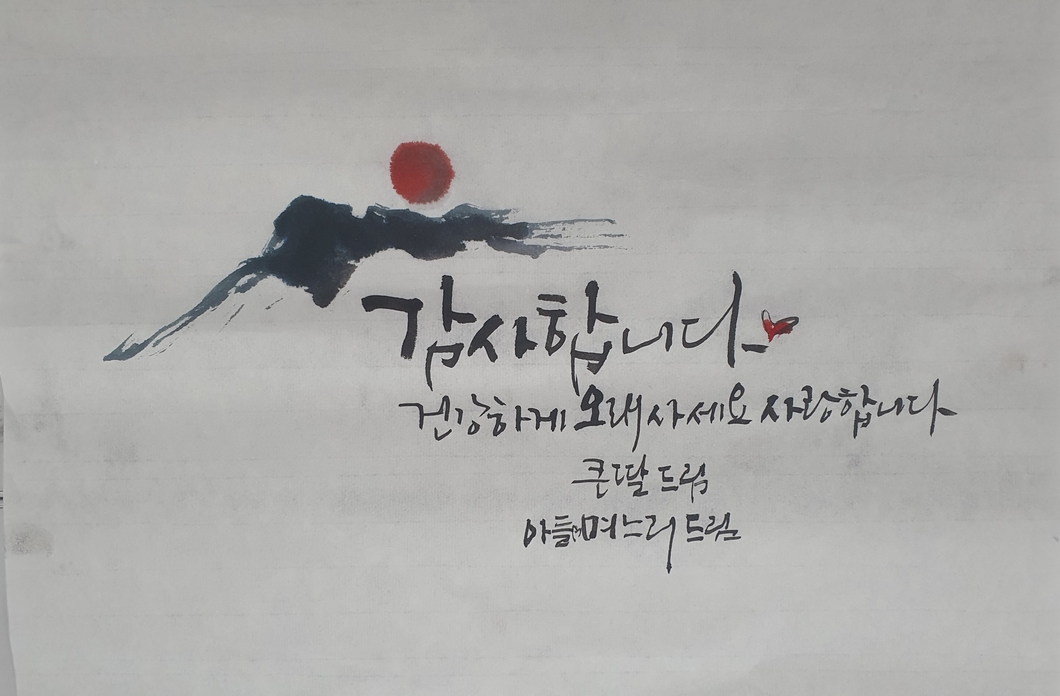 감사합니다
건강하게 오래 사세요 사랑합니다
큰딸 드림
아들 며느리 드림